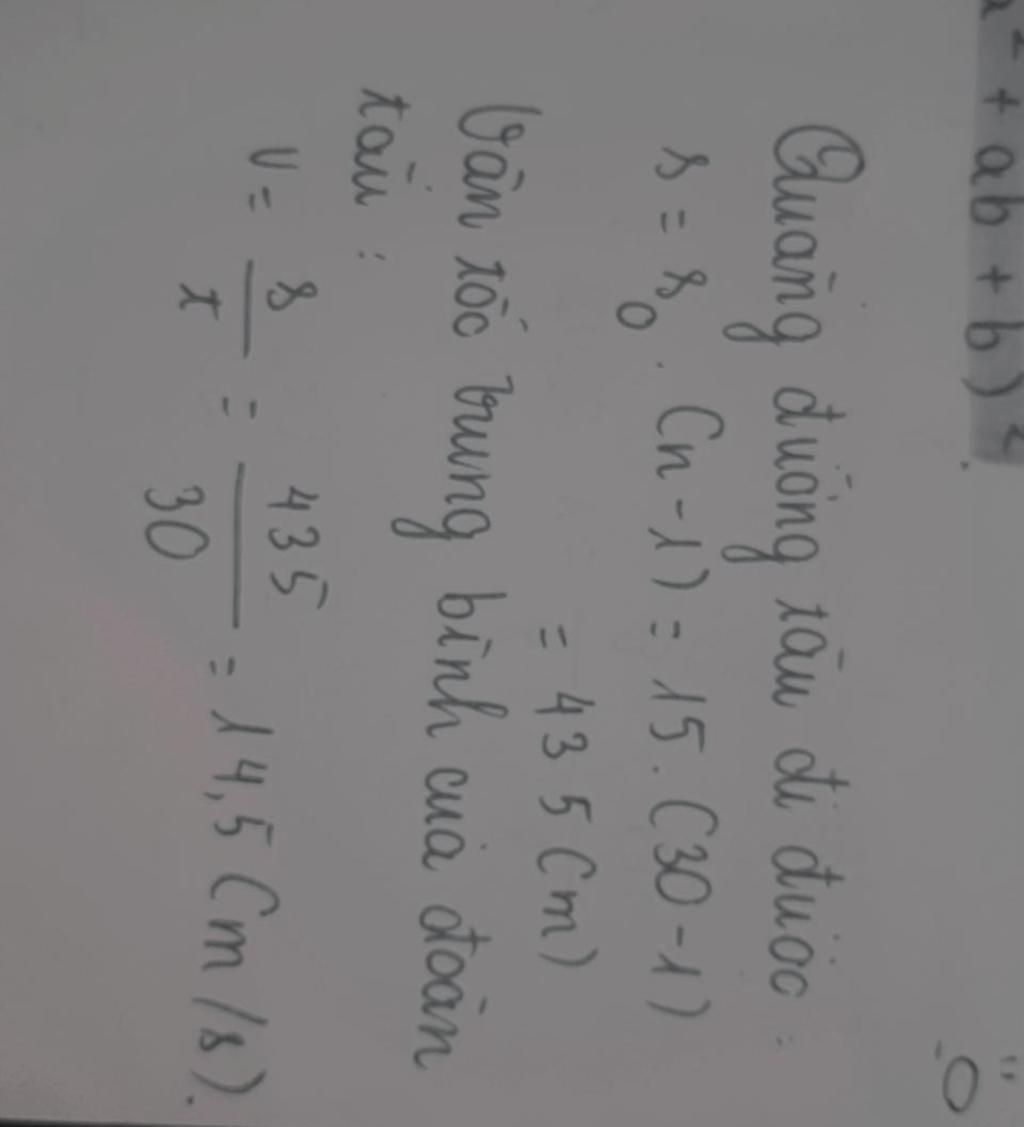 ² + ab + b)².
Quãng đường tàu đi được :
s = s₀ . (n - 1) = 15 . (30 - 1)
= 435 (m)
Vận tốc trung bình của đoàn
tàu :
v = s/t = 435/30 = 14,5 (m/s).